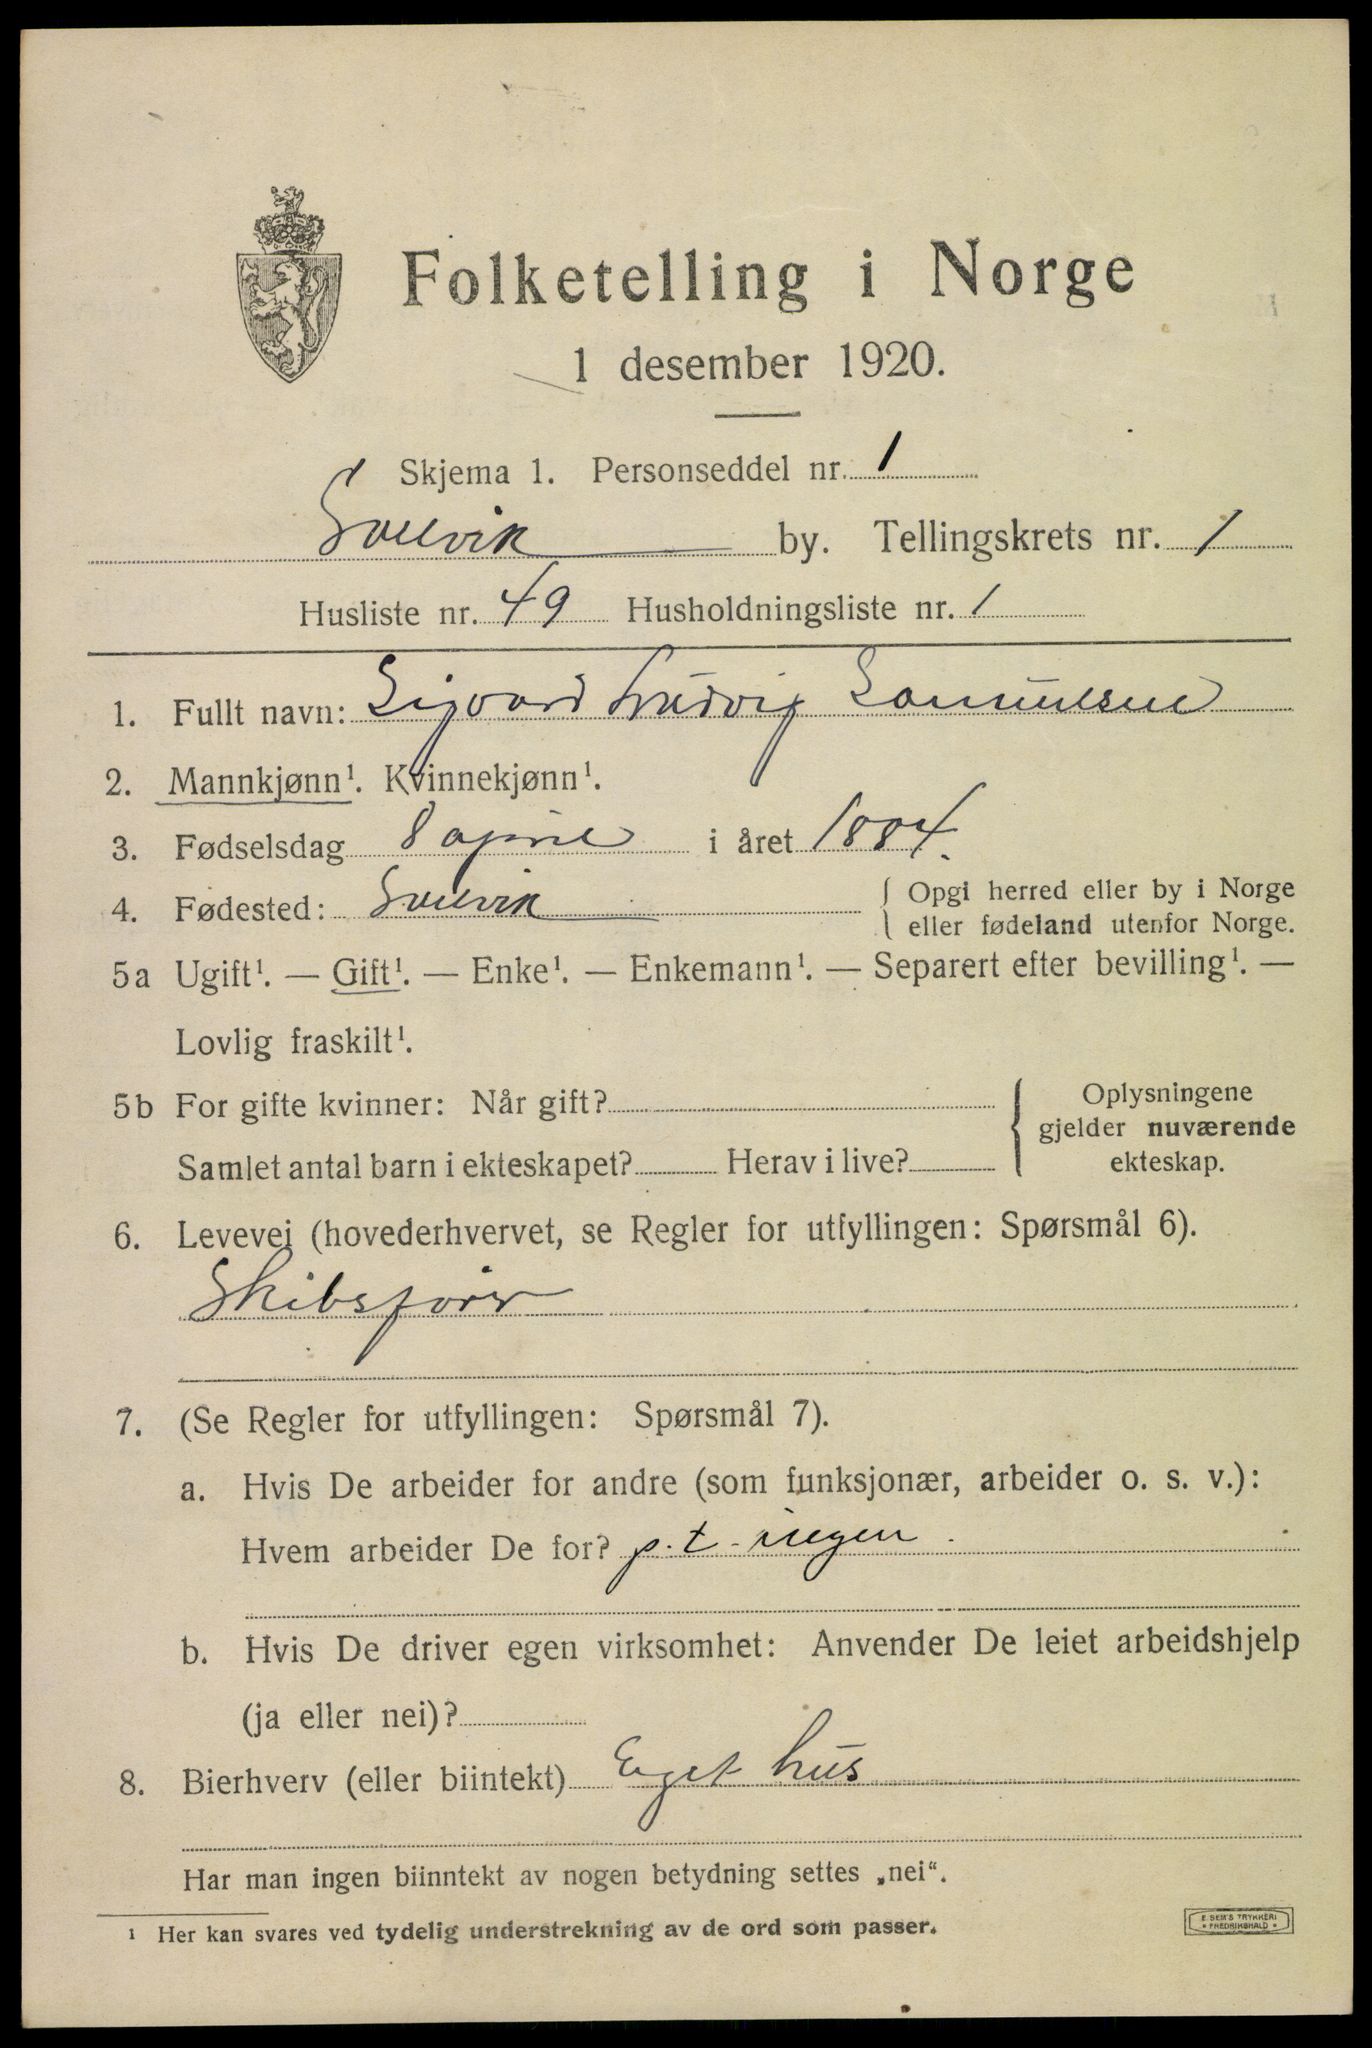 Folketelling i Norge
1 desember 1920.
Skjema 1. Personseddel nr. 1
Svelvik by. Tellingskrets nr. 1
Husliste nr. 49 Husholdningsliste nr. 1
1. Fullt navn: Sigvard Ludvig Samuelsen
2. Mannkjønn¹. Kvinnekjønn¹.
3. Fødselsdag 8 april i året 1884.
4. Fødested: Svelvik { Opgi herred eller by i Norge
eller fødeland utenfor Norge.
5a Ugift¹. — Gift¹. — Enke¹. — Enkemann¹. — Separert efter bevilling¹. —
Lovlig fraskilt¹.
5b For gifte kvinner: Når gift? { Oplysningene
gjelder nuværende
Samlet antal barn i ekteskapet? Herav i live? ekteskap.
6. Levevei (hovederhvervet, se Regler for utfyllingen: Spørsmål 6).
Skibsfører
7. (Se Regler for utfyllingen: Spørsmål 7).
a. Hvis De arbeider for andre (som funksjonær, arbeider o. s. v.):
Hvem arbeider De for? p.t. ingen.
b. Hvis De driver egen virksomhet: Anvender De leiet arbeidshjelp
(ja eller nei)?
8. Bierhverv (eller biintekt) Eget hus
Har man ingen biinntekt av nogen betydning settes „nei“.
¹ Her kan svares ved tydelig understrekning av de ord som passer.
E SEM'S TRYKKERI
* FREDRIKSHALD *